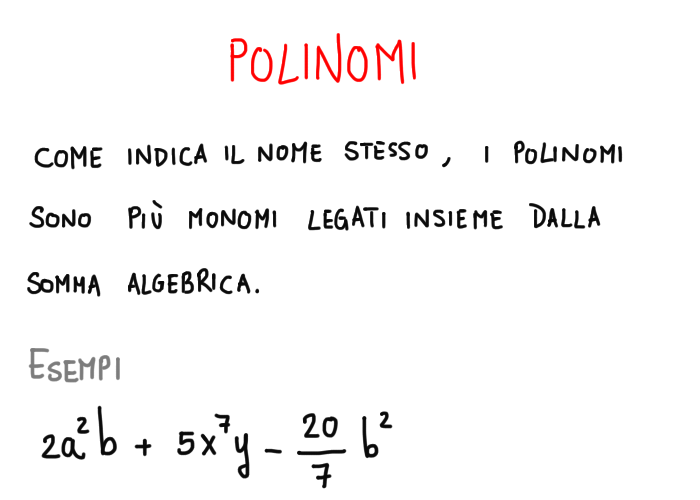 POLINOMI
COME INDICA IL NOME STESSO, I POLINOMI
SONO PIÙ MONOMI LEGATI INSIEME DALLA
SOMMA ALGEBRICA.
ESEMPI
2a²b + 5x⁷y - 20/7 b²